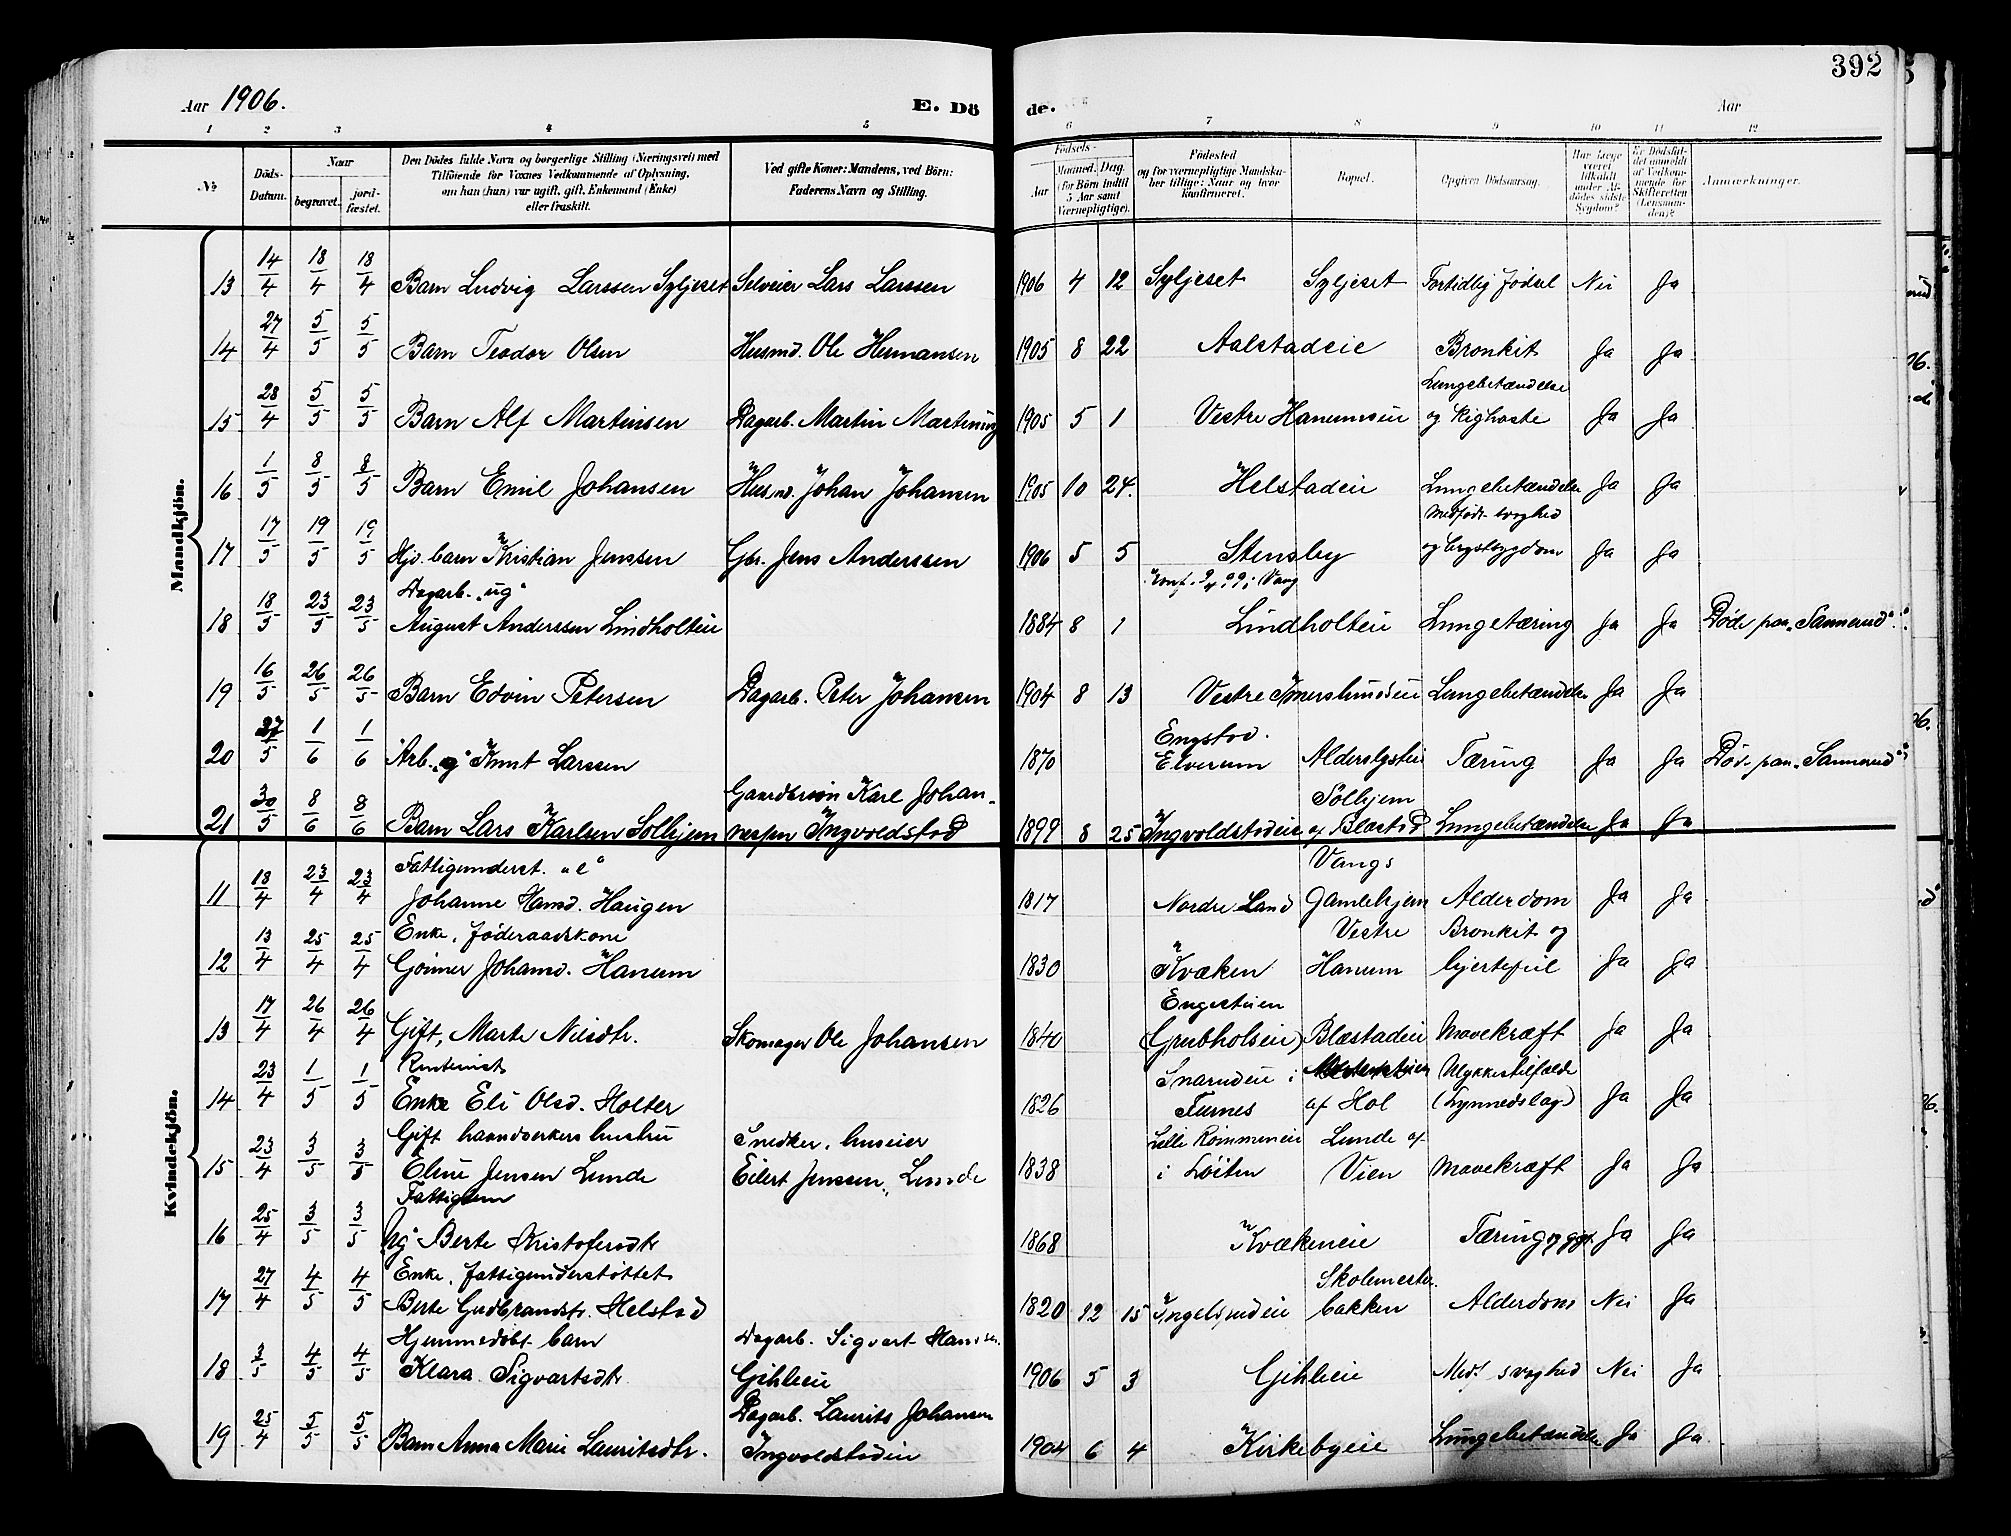 392
Aar 1906. E. Dö de. Aar
1 2 3 4 5 6 7 8 9 10 11 12
№ Döds-Datum. Naar begravet. jordfæstet. Den Dödes fulde Navn og borgerlige Stilling (Næringsvei) med Tilföiende for Voxnes Vedkommende af Oplysning, om han (hun) var ugift, gift, Enkemand (Enke) eller fraskilt. Ved gifte Koner: Mandens, ved Börn: Faderens Navn og Stilling. Födsels- Aar Maaned. Dag. (for Börn indtil 5 Aar samt Værnepligtige). Födested og for værnepligtige Mandskaber tillige: Naar og hvor konfirmeret. Bopæl. Opgiven Dödsaarsag. Har Læge været tilkaldt under Afdödes sidste Sygdom? Er Dödsfaldet anmeldt af Vedkommende for Skifteretten (Lensmanden)? Anmærkninger.
Mandkjön.
13 14/4 18/4 18/4 Barn Ludvig Larssen Syljeset Selveier Lars Larssen 1906 4 12 Syljeset Syljeset Fortidlig födsel Nei Ja
14 27/4 5/5 5/5 Barn Teodor Olsen Husmd. Ole Hermansen 1905 8 22 Aalstadeie Bronkit Ja Ja
Lungebetændelse
15 28/4 5/5 5/5 Barn Alf Martinsen Dagarb. Martin Martinsen 1905 5 1 Vestre Hanumseie og kighoste Ja Ja
16 1/5 8/5 8/5 Barn Emil Johansen Husmd. Johan Johansen 1905 10 24. Helstadeie Lungebetændelse Ja Ja
Medfödt svaghed
17 17/5 19/5 19/5 Hjd. barn Kristian Jenssen Gbr. Jens Anderssen 1906 5 5 Stensby og brystsygdom Ja Ja
Dagarb. "ug" Konf. 9/ 99 i Vang
18 18/5 23/5 23/5 August Anderssen Lindholteie 1884 8 1 Lindholteie Lungetæring Ja Ja Döde paa "Sannerud".
19 16/5 26/5 26/5 Barn Edvin Petersen Dagarb. Peter Johansen 1904 8 13 Vestre Imerslundeie Lungebetændelse Ja Ja
Engstad.
20 27/5 1/6 1/6 Arb. "g" Knut Larssen 1870 Elverum Alderslysteie Tæring Ja Ja Död paa "Sannerud"
Gaardbr Karl Johan- Solhjem
21 30/5 8/6 8/6 Barn Lars Karlsen Solhjem nessen Ingvoldstad 1899 8 25 Ingvoldstadeie af Blæstad Lungebetændelse Ja Ja
Kvindekjön.
Fattigunderst. "e" Vangs
11 18/4 23/4 23/4 Johanne Hansd. Haugen 1817 Nordre Land Gamlehjem Alderdom Ja Ja
Enke, föderaadskone Vestre Bronkit og
12 13/4 25/4 25/4 Goimer Johansd. Hanum 1830 Kvæken Hanum hjertefeil Ja Ja
Engestuen
13 17/4 26/4 26/4 Gift, Marte Nilsdtr. Skomager Ole Johansen 1840 (Grubholseie) Blæstadeie Mavekræft Ja Ja
Rentenist Snarudeie i Ulykkestilfælde
14 23/4 1/5 1/5 Enke Eli Olsd. Holter 1826 Furnes af Hol (Lynnedslag) Ja Ja
Gift haandverkers hustru Snedker, huseier Lille Rommeneie Lunde af
15 23/4 3/5 3/5 Eline Jensen Lunde Eilert Jenssen, Lunde 1838 i Löiten Vien Mavekræft Ja Ja
Fattiglem
16 25/4 3/5 3/5 "ug" Berte Kristofersdtr 1868 Kvækeneie Tæring Ja Ja
Enke, fattigunderstöttet Skolemester
17 27/4 4/5 4/5 Berte Gudbrandsdtr. Helstad 1820 12 15 Ingelsrudeie bakken Alderdom Nei Ja
Hjemmedöbt barn Dagarb. Sigvart Hansen.
18 3/5 4/5 4/5 Klara Sigvartsdtr Gihleeie 1906 5 3 Gihleeie Medf. svaghed Nei Ja
Dagarb. Laurits Johansen
19 25/4 5/5 5/5 Barn Anna Marie Lauritsdtr. Ingvoldstadeie 1904 6 4 Kirkebyeie Lungebetændelse Ja Ja